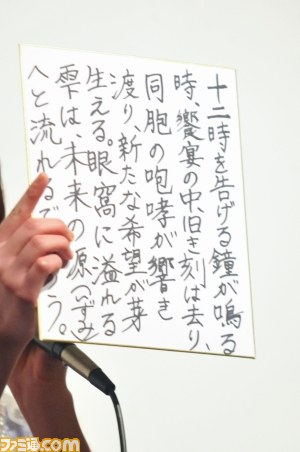 十二時を告げる鐘が鳴る
時、饗宴の中、旧き刻は去り、
同胞の咆哮が響き
渡り、新たな希望が芽
生える。眼窩に溢れる
雫は、未来の源(いずみ)
へと流れるであろう。
ファミ通.com